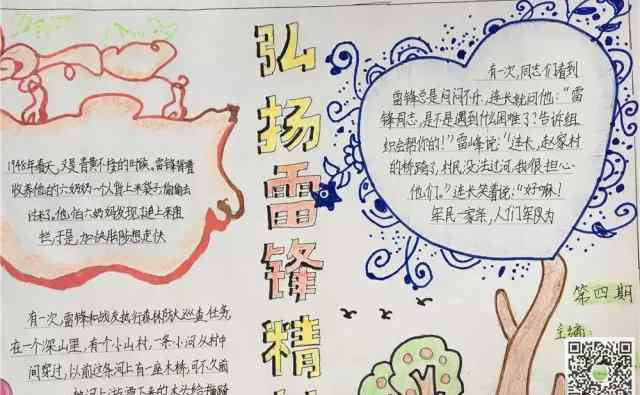 弘扬雷锋精
1948年春天，又是青黄不接的时候。雷锋背着
收养他的六奶奶一个人背上米袋子偷偷去
过村。他怕六奶奶发现，
于是，加快脚步想走快
有一次，同志们看到
雷锋总是闷闷不乐，连长就问他：“雷
锋同志，是不是遇到什么困难了？告诉组
织会帮你的！”雷峰说：“连长，赵家村
的桥踏了，村民没法过河，我很担心
他们。”连长笑着说：“好嘛！
军民一家亲，人们军队为
有一次，雷锋和战友执行森林防火巡查任务，
在一个深山里，有个小山村，一条小河从村中
间穿过，以前这条河上有一座木桥，可不久前
被河上游漂下来的木头给撞踏
第四期
主编：